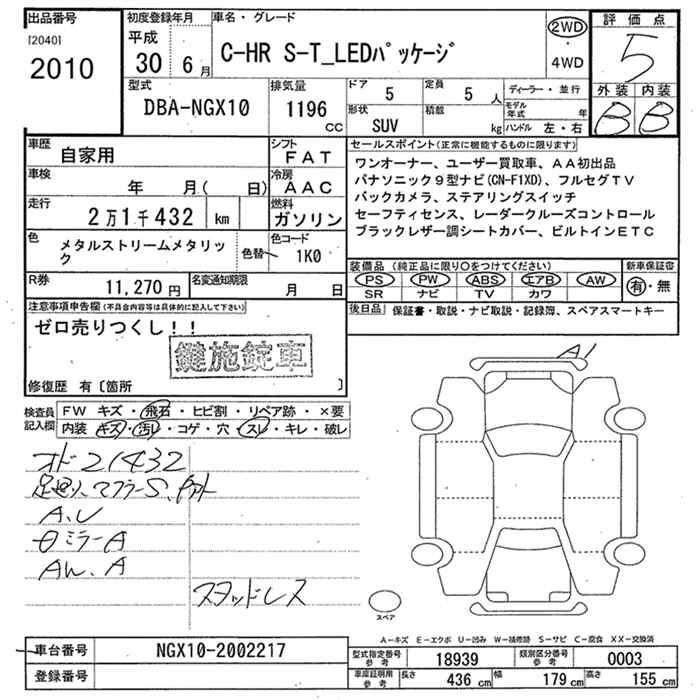 出品番号
[2040]
2010
初度登録年月
平成
30 6月
車名・グレード
C-HR S-T_LEDパッケージ
2WD
・
4WD
評価点
5
外装 内装
B B
型式
DBA-NGX10
排気量
1196
CC
ドア
5
定員
5 人
形状
SUV
積載
kg
ディーラー・並行
モデル年式 年
ハンドル 左・右
車歴
自家用
シフト
FAT
車検
年 月( 日)
冷房
AAC
走行
2万1千432 km
燃料
ガソリン
色
メタルストリームメタリック
色替
色コード
1K0
R券
11,270円
名変通知期限
月 日
セールスポイント(正常に機能するものに限ります)
ワンオーナー、ユーザー買取車、AA初出品
パナソニック9型ナビ(CN-F1XD)、フルセグTV
バックカメラ、ステアリングスイッチ
セーフティセンス、レーダークルーズコントロール
ブラックレザー調シートカバー、ビルトインETC
装備品(純正品に限り○をつけてください)
PS PW ABS エアB AW
SR ナビ TV カワ
新車保証書
有・無
後日品 保証書・取説・ナビ取説・記録簿、スペアスマートキー
注意事項申告欄(不具合内容等は具体的に記入して下さい)
ゼロ売りつくし!!
鍵施錠車
修復歴 有〔箇所 〕
検査員記入欄
FW キズ・飛石・ヒビ割・リペア跡・×要
内装 キズ・汚レ・コゲ・穴・スレ・キレ・破レ
オド21432
足廻り、マフラーS
A、U
ミラーA
A
スタッドレス
A1
スペア
A-キズ E-エクボ U-凹み W-補修跡 S-サビ C-腐食 XX-交換済
車台番号
NGX10-2002217
登録番号
型式指定番号
参考
18939
類別区分番号
参考
0003
車庫証明用
参考
長さ
436 cm
幅
179 cm
高さ
155 cm